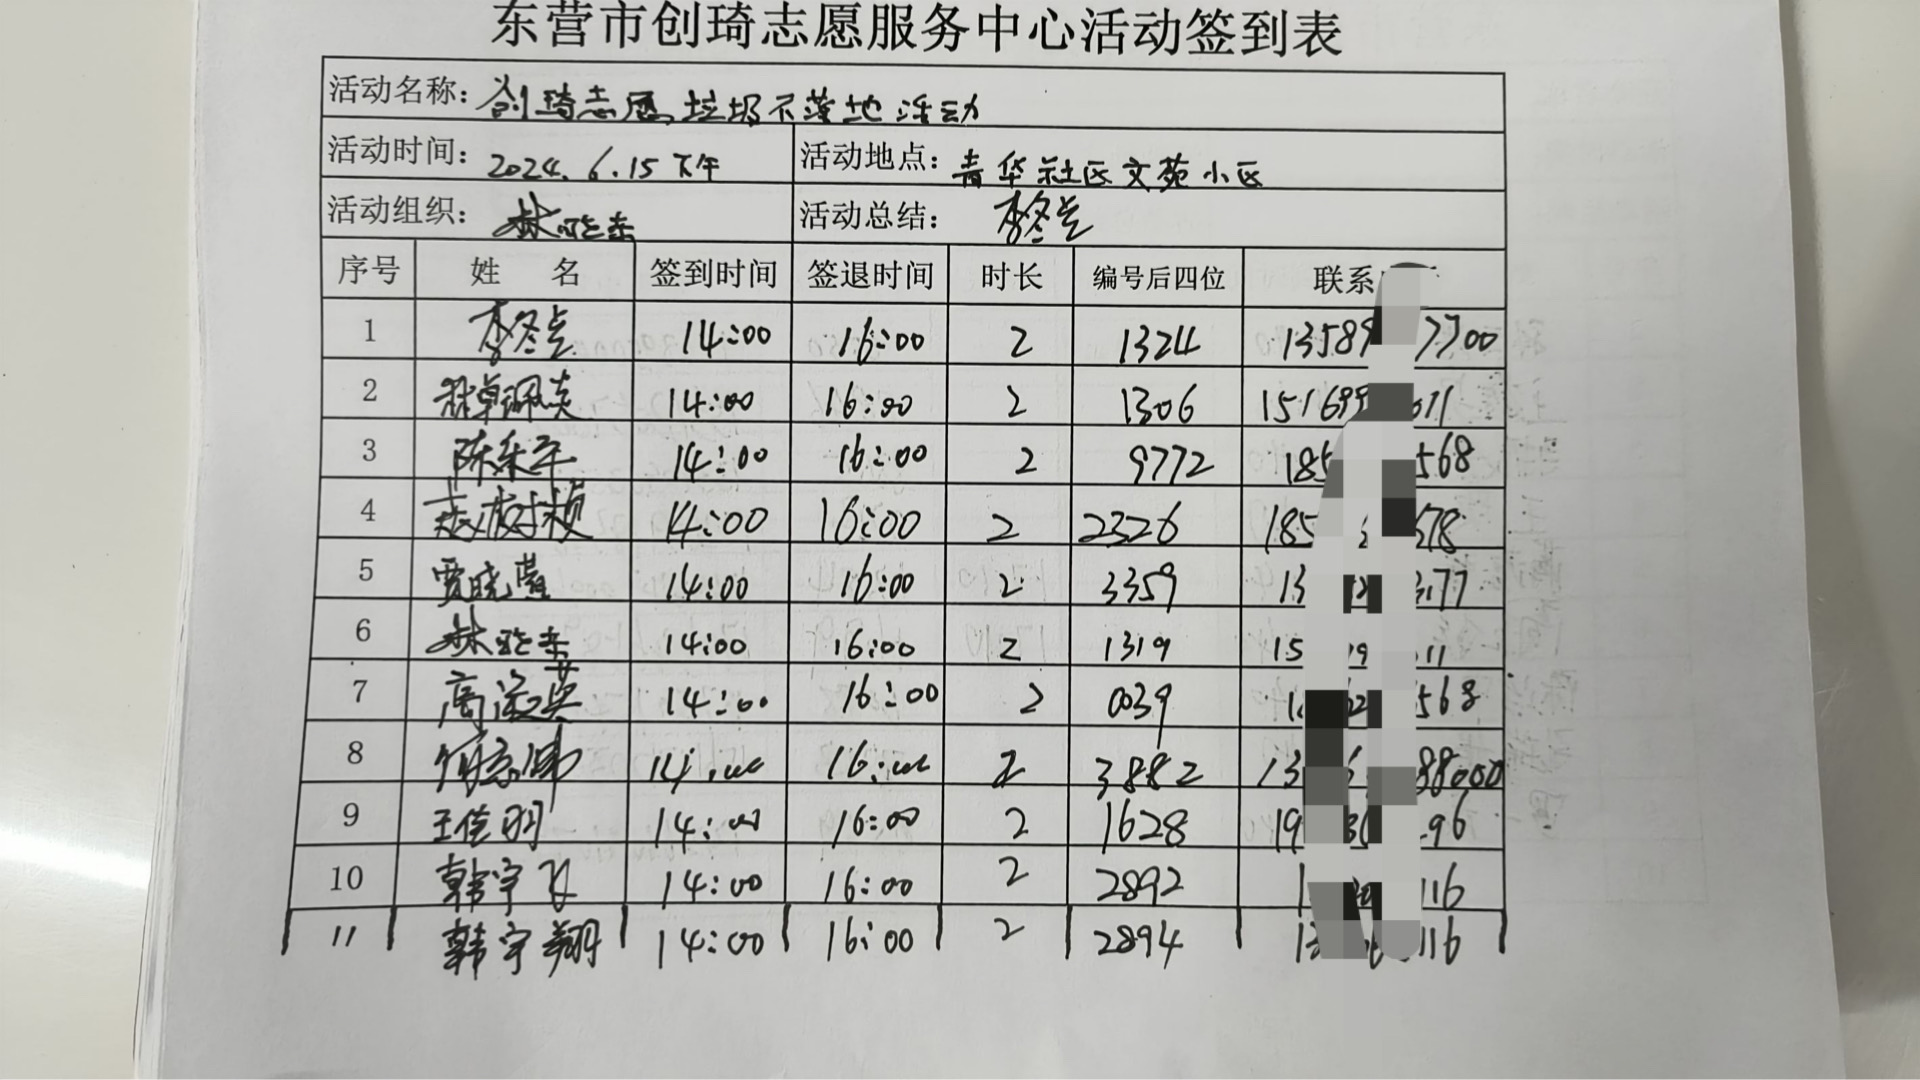 东营市创琦志愿服务中心活动签到表
活动名称：创琦志愿垃圾不落地活动
活动时间：2024.6.15下午 活动地点：青华社区文苑小区
活动组织：林晓东 活动总结：李冬兰
序号 姓名 签到时间 签退时间 时长 编号后四位 联系
1 李冬兰 14:00 16:00 2 1324 13589 7700
2 14:00 16:00 2 1306 151699 11
3 14:00 16:00 2 9772 185 568
4 14:00 16:00 2 2326 185 678
5 贾晓 14:00 16:00 2 3359 13 3177
6 林晓东 14:00 16:00 2 1319 15 19 11
7 高淑英 14:00 16:00 2 0039 568
8 14:00 16:00 2 3882 13 88000
9 王佳明 14:00 16:00 2 1628 19 96
10 韩宇飞 14:00 16:00 2 2892 1 116
11 韩宇翔 14:00 16:00 2 2894 13 116